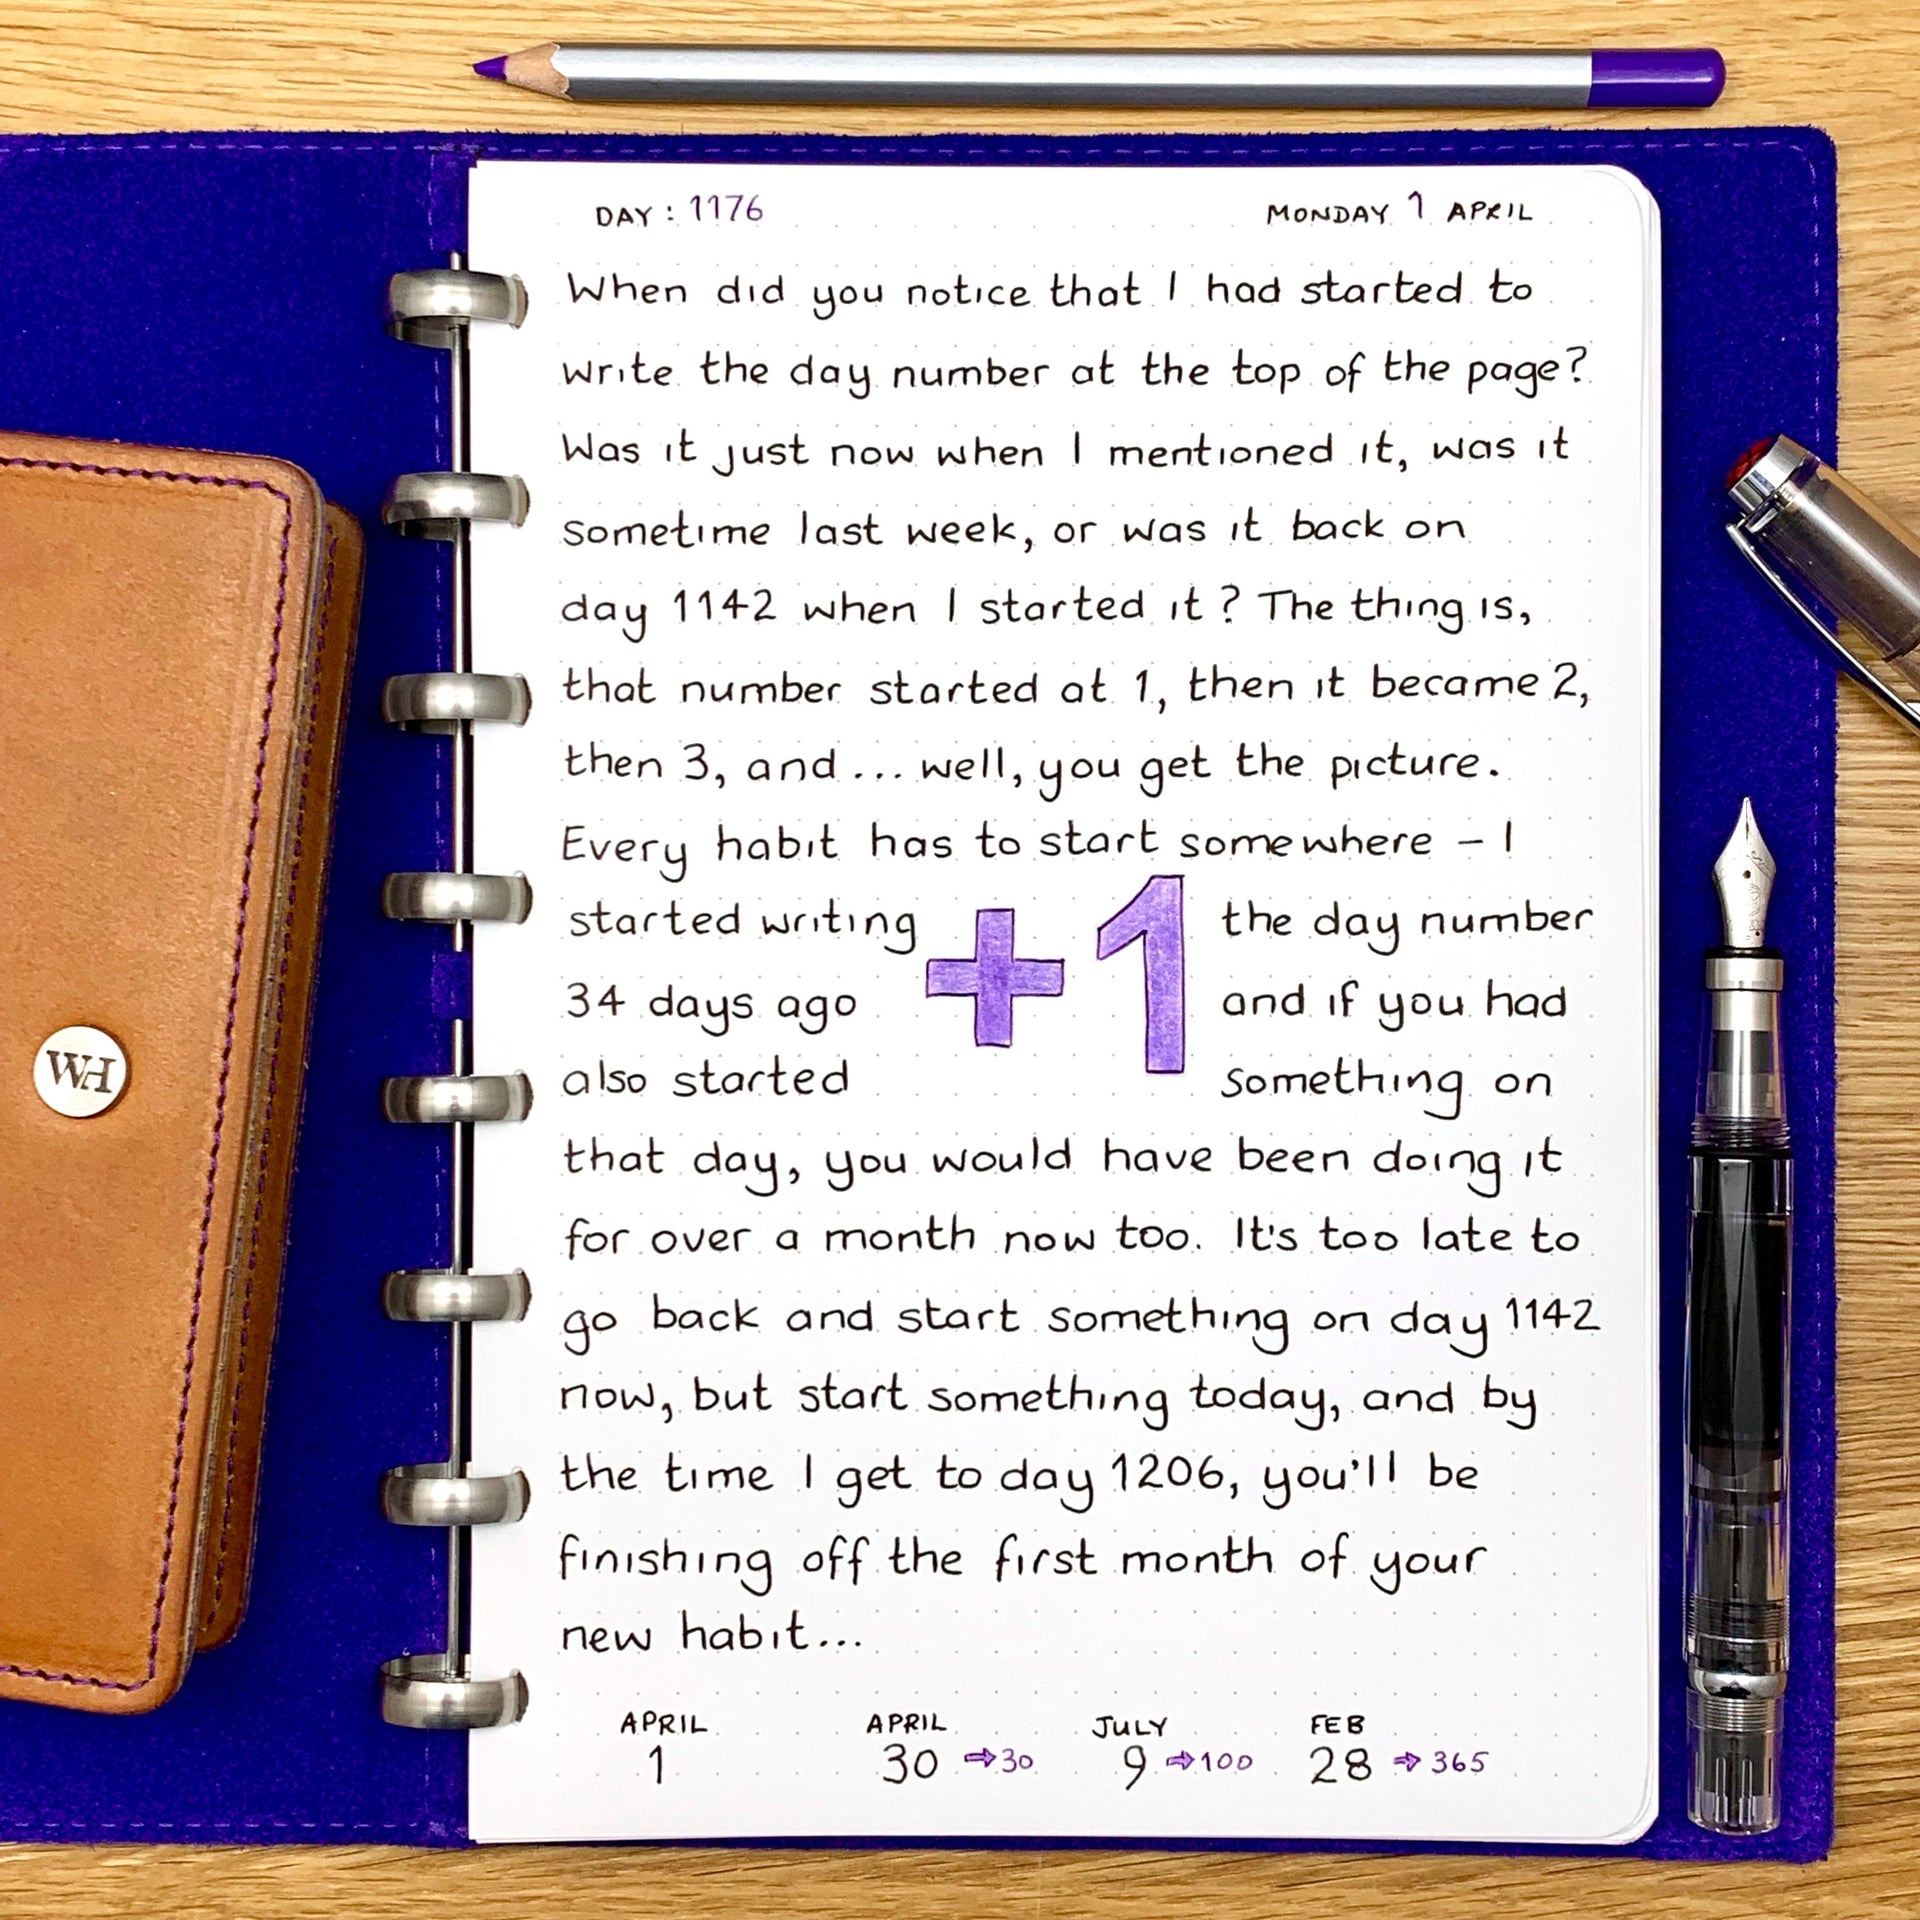 DAY : 1176 MONDAY 1 APRIL
When did you notice that I had started to
write the day number at the top of the page?
Was it just now when I mentioned it, was it
sometime last week, or was it back on
day 1142 when I started it? The thing is,
that number started at 1, then it became 2,
then 3, and ... well, you get the picture.
Every habit has to start somewhere – I
started writing the day number
34 days ago and if you had
also started something on
+1
that day, you would have been doing it
for over a month now too. It's too late to
go back and start something on day 1142
now, but start something today, and by
the time I get to day 1206, you'll be
finishing off the first month of your
new habit...
APRIL APRIL JULY FEB
1 30 ⇨30 9 ⇨100 28 ⇨ 365
WH